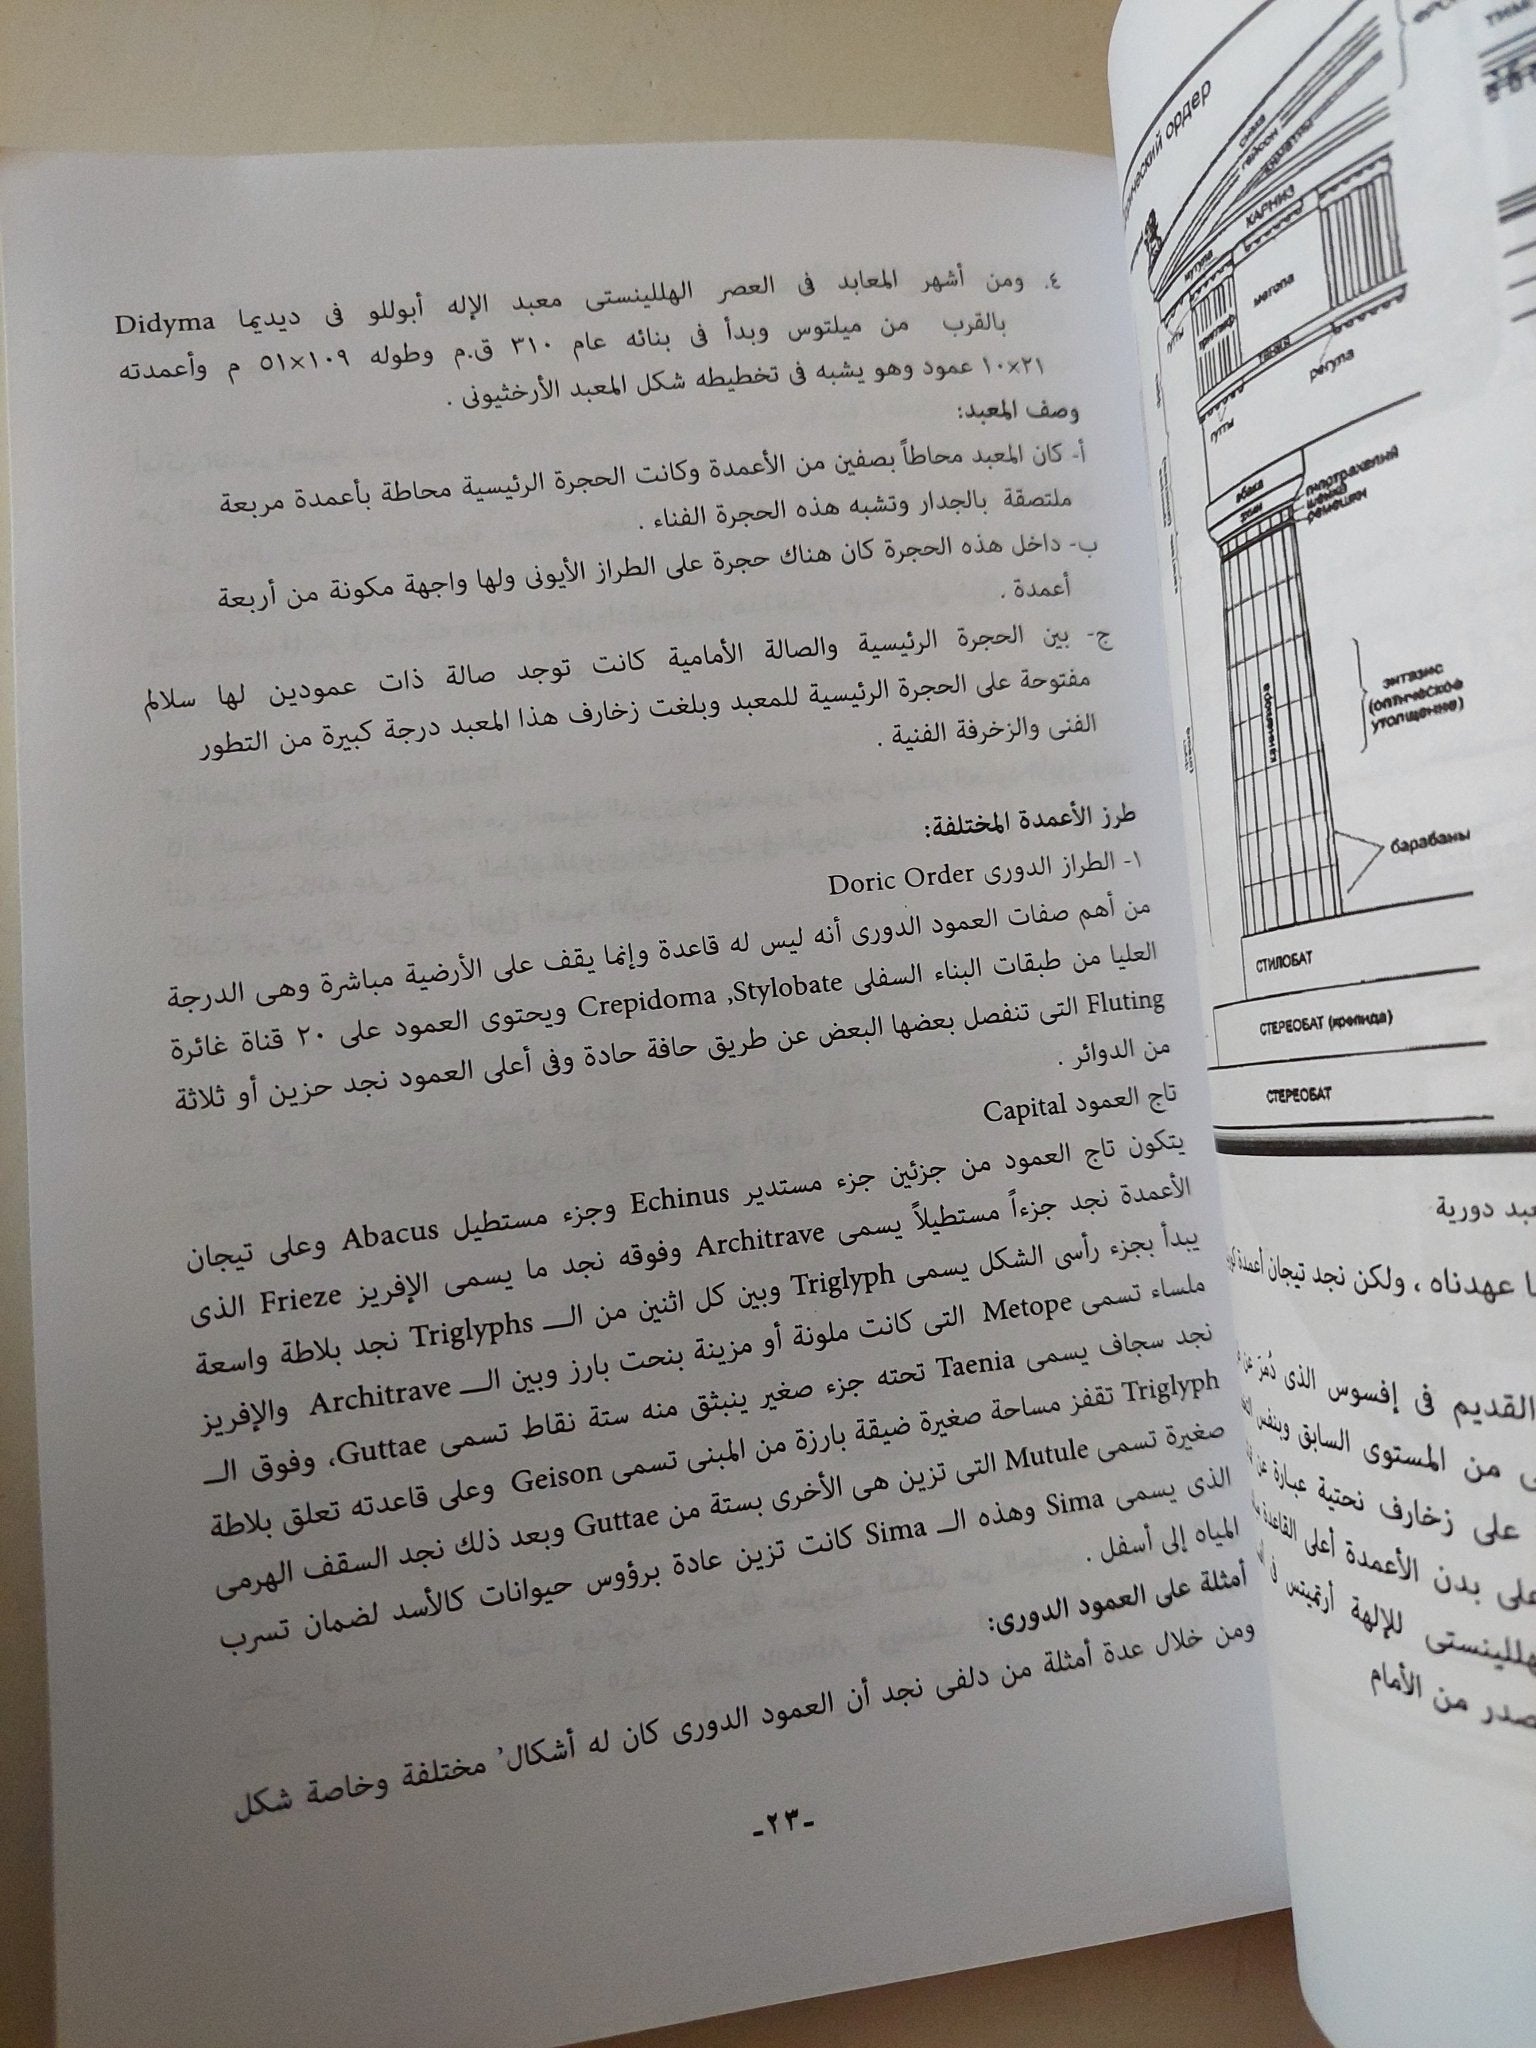 ٤. ومن أشهر المعابد فى العصر الهللينستى معبد الإله أبوللو فى ديديما Didyma
بالقرب من ميلتوس وبدأ فى بنائه عام ٣١٠ ق.م وطوله ١٠٩×٥١ م وأعمدته
٢١×١٠ عمود وهو يشبه فى تخطيطه شكل المعبد الأرخثيونى .
وصف المعبد:
أ- كان المعبد محاطاً بصفين من الأعمدة وكانت الحجرة الرئيسية محاطة بأعمدة مربعة
ملتصقة بالجدار وتشبه هذه الحجرة الفناء .
ب- داخل هذه الحجرة كان هناك حجرة على الطراز الأيونى ولها واجهة مكونة من أربعة
أعمدة .
ج- بين الحجرة الرئيسية والصالة الأمامية كانت توجد صالة ذات عمودين لها سلالم
مفتوحة على الحجرة الرئيسية للمعبد وبلغت زخارف هذا المعبد درجة كبيرة من التطور
الفنى والزخرفة الفنية .
طرز الأعمدة المختلفة:
١- الطراز الدورى Doric Order
من أهم صفات العمود الدورى أنه ليس له قاعدة وإنما يقف على الأرضية مباشرة وهى الدرجة
العليا من طبقات البناء السفلى Crepidoma ,Stylobate ويحتوى العمود على ٢٠ قناة غائرة
Fluting التى تنفصل بعضها البعض عن طريق حافة حادة وفى أعلى العمود نجد حزين أو ثلاثة
من الدوائر .
تاج العمود Capital
يتكون تاج العمود من جزئين جزء مستدير Echinus وجزء مستطيل Abacus وعلى تيجان
الأعمدة نجد جزءاً مستطيلاً يسمى Architrave وفوقه نجد ما يسمى الإفريز Frieze الذى
يبدأ بجزء رأسى الشكل يسمى Triglyph وبين كل اثنين من الـ Triglyphs نجد بلاطة واسعة
ملساء تسمى Metope التى كانت ملونة أو مزينة بنحت بارز وبين الـ Architrave والإفريز
نجد سجاف يسمى Taenia تحته جزء صغير ينبثق منه ستة نقاط تسمى Guttae، وفوق الـ
Triglyph تقفز مساحة صغيرة ضيقة بارزة من المبنى تسمى Geison وعلى قاعدته تعلق بلاطة
صغيرة تسمى Mutule التى تزين هى الأخرى بستة من Guttae وبعد ذلك نجد السقف الهرمى
الذى يسمى Sima وهذه الـ Sima كانت تزين عادة برؤوس حيوانات كالأسد لضمان تسرب
المياه إلى أسفل .
أمثلة على العمود الدورى:
ومن خلال عدة أمثلة من دلفى نجد أن العمود الدورى كان له أشكال’ مختلفة وخاصة شكل
-٢٣-
ордер
гейсон
КАРНИЗ
мутула
гутты
триглиф
метопа
тения
регула
гутты
абака
эхин
гипотрахелий
шейка
ремешки
каннелюры
энтазис
(оптическое
утолщение)
барабаны
СТИЛОБАТ
СТЕРЕОБАТ (крепида)
СТЕРЕОБАТ
دورية
عهدناه ، ولكن نجد تيجان أعمدة
القديم فى إفسوس الذى دُمرَ عن
من المستوى السابق وبنفس
على زخارف نحتية عبارة عن
بدن الأعمدة أعلى القاعدة
للإلهة أرتميتس فى
من الأمام